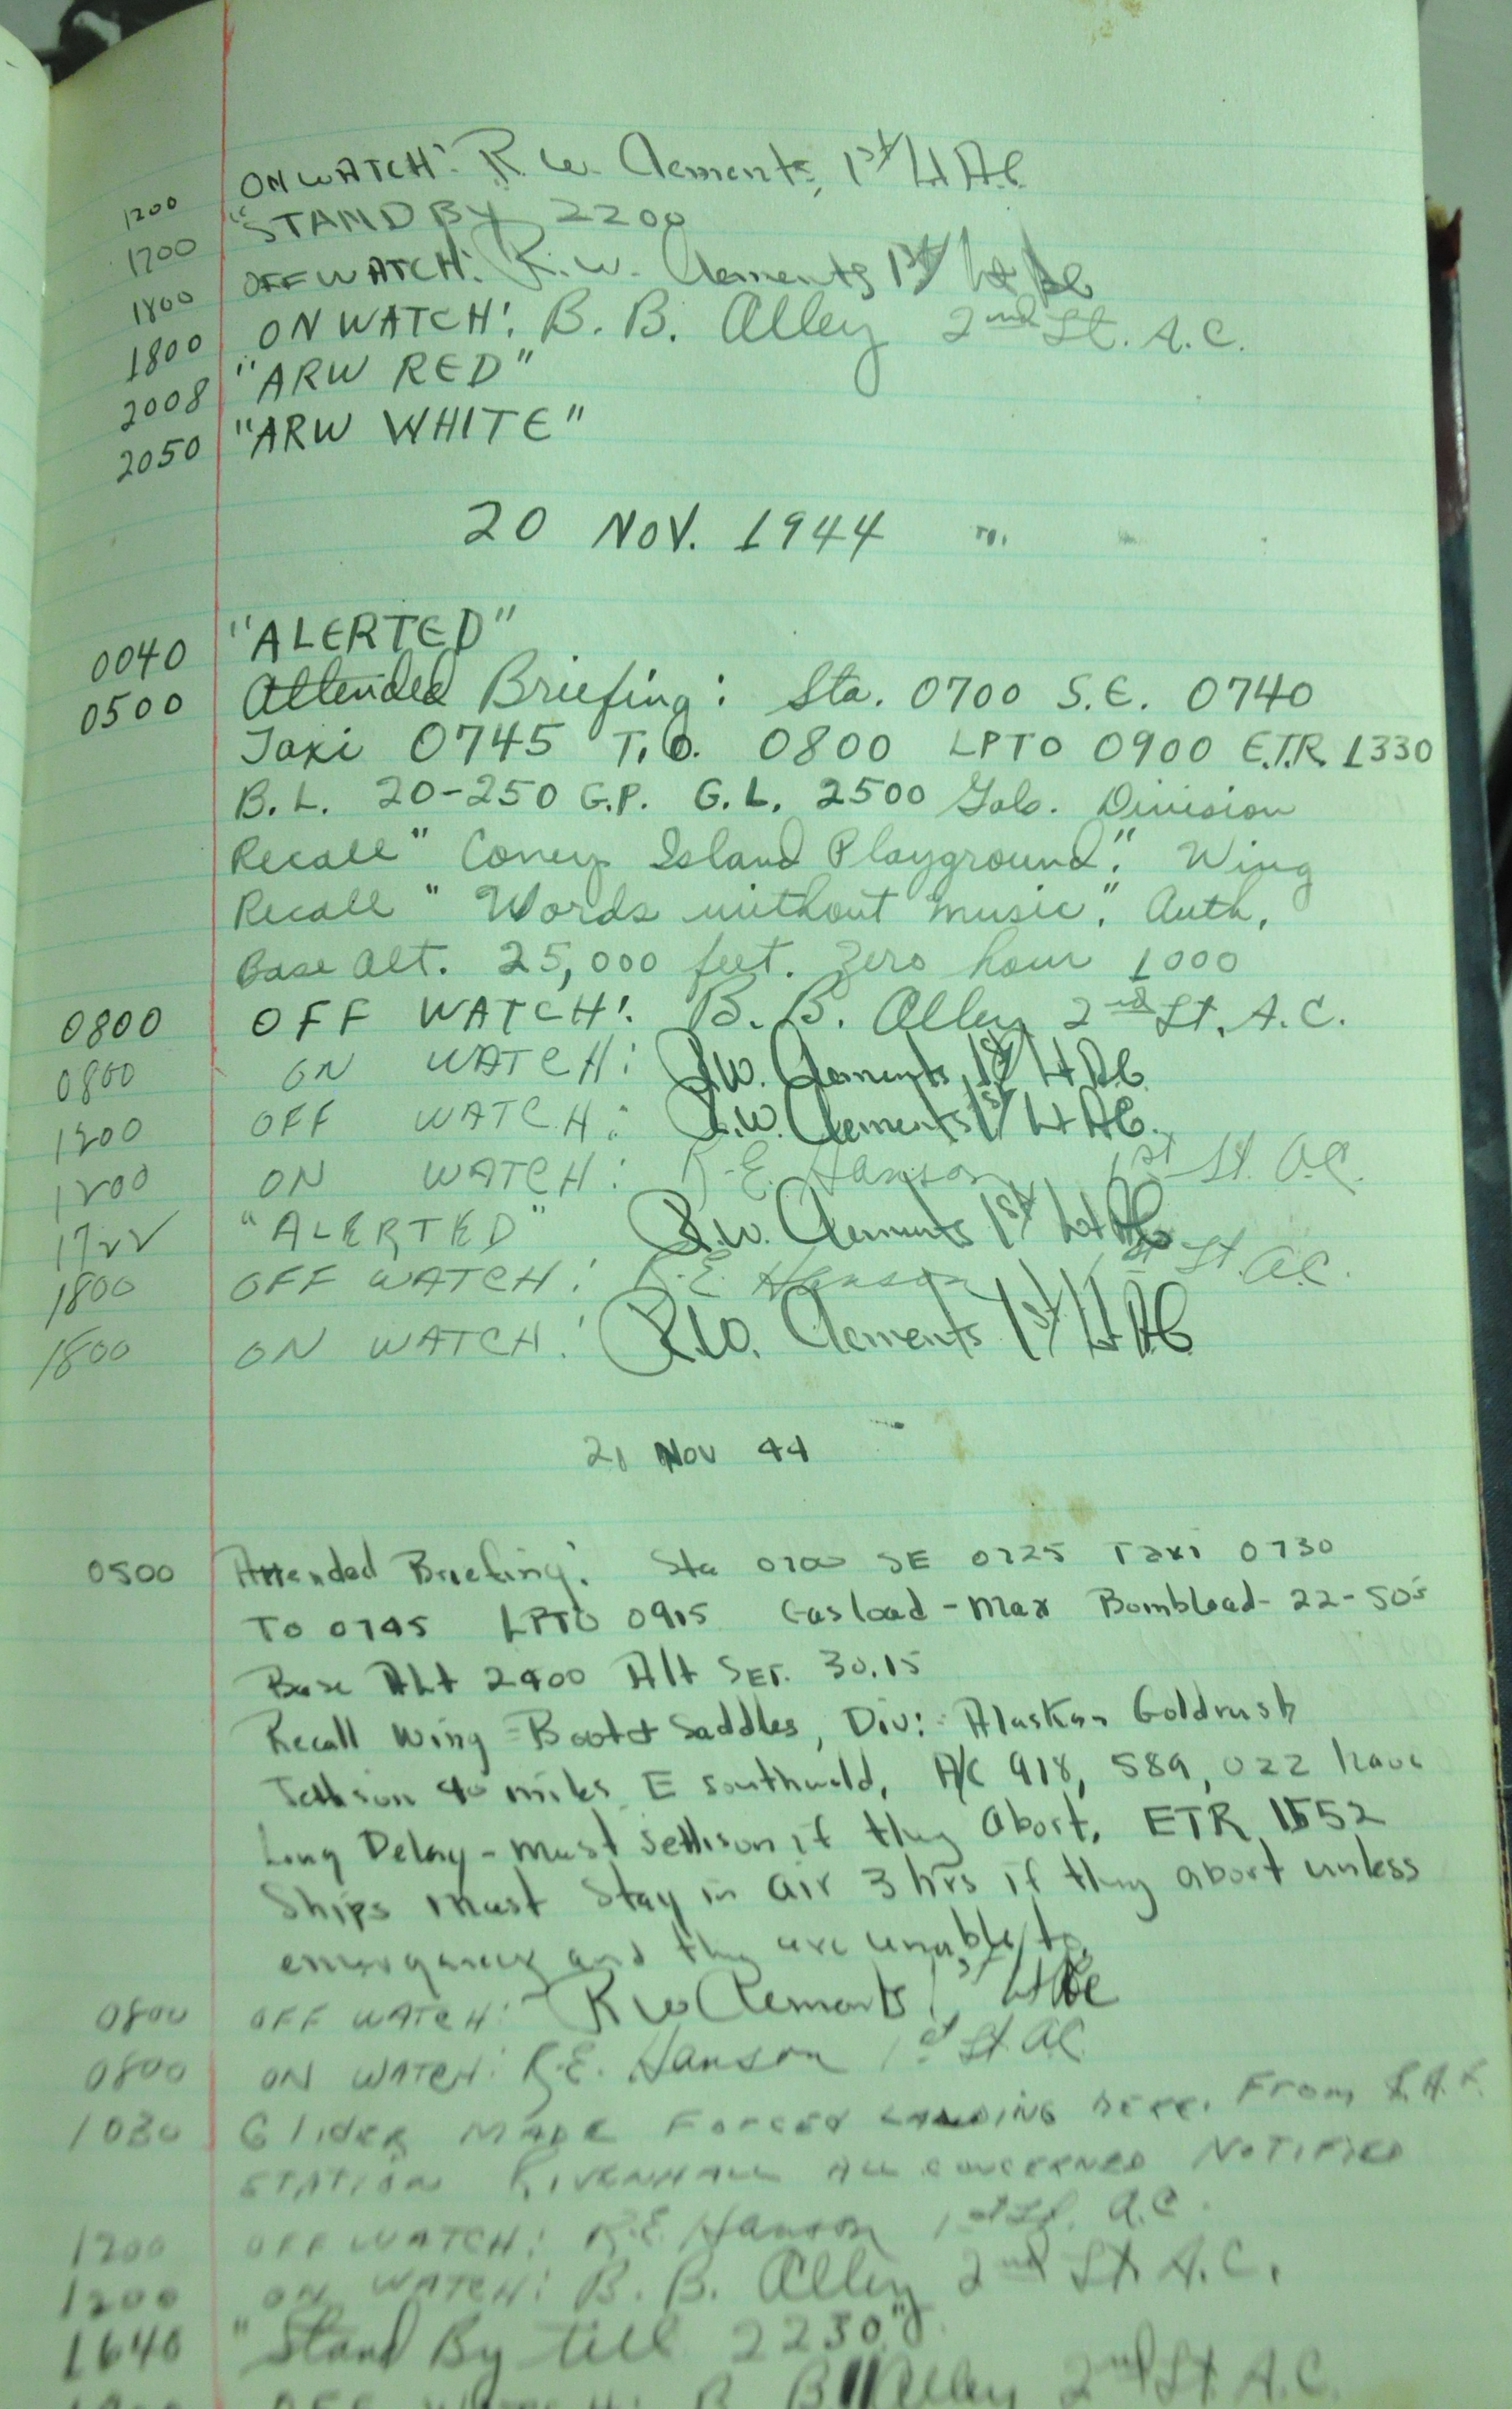 1200 ON WATCH: R. W. Clements, 1st Lt AC
1700 "STAND BY 2200
1800 OFF WATCH: R. W. Clements 1st Lt AC
1800 ON WATCH: B. B. Alley 2nd Lt. A.C.
2008 "ARW RED"
2050 "ARW WHITE"
20 NOV. 1944
0040 "ALERTED"
0500 Attended Briefing: Sta. 0700 S.E. 0740
Taxi 0745 T.O. 0800 LPTO 0900 E.T.R. 1330
B.L. 20-250 G.P. G.L. 2500 Gals. Division
Recall "Coney Island Playground." Wing
Recall "Words without music." Auth.
Base Alt. 25,000 feet. Zero hour 1000
0800 OFF WATCH: B. B. Alley 2nd Lt. A.C.
0800 ON WATCH: R.W. Clements, 1st Lt AC
1200 OFF WATCH: R.W. Clements 1st Lt AC.
1200 ON WATCH: R.E. Hanson 1st Lt. A.C.
1722 "ALERTED" R.W. Clements 1st Lt AC
1800 OFF WATCH: R.E. Hanson 1st Lt. A.C.
1800 ON WATCH: R.W. Clements 1st Lt AC
21 Nov 44
0500 Attended Briefing: Sta 0700 SE 0725 Taxi 0730
To 0745 LPTO 0915 Gas load - Max Bombload - 22-50's
Base Alt 2400 Alt SET. 30.15
Recall Wing = Boot & Saddles, Div: Alaskan Goldrush
Jettison 40 miles E Southwold, A/C 918, 589, 022 have
Long Delay - must jettison if they abort. ETR 1552
Ships must stay in air 3 hrs if they abort unless
emergency and they are unable to.
0800 OFF WATCH: R W Clements 1st Lt AC
0800 ON WATCH: R.E. Hanson 1st Lt AC
1030 Glider made forced landing here. From
STATION RIVENHALL ALL CONCERNED NOTIFIED
1200 OFF WATCH: R.E. Hanson 1st Lt. A.C.
1200 ON WATCH: B. B. Alley 2nd Lt. A.C.
1640 "Stand By till 2230"
OFF B Alley 2nd Lt A.C.